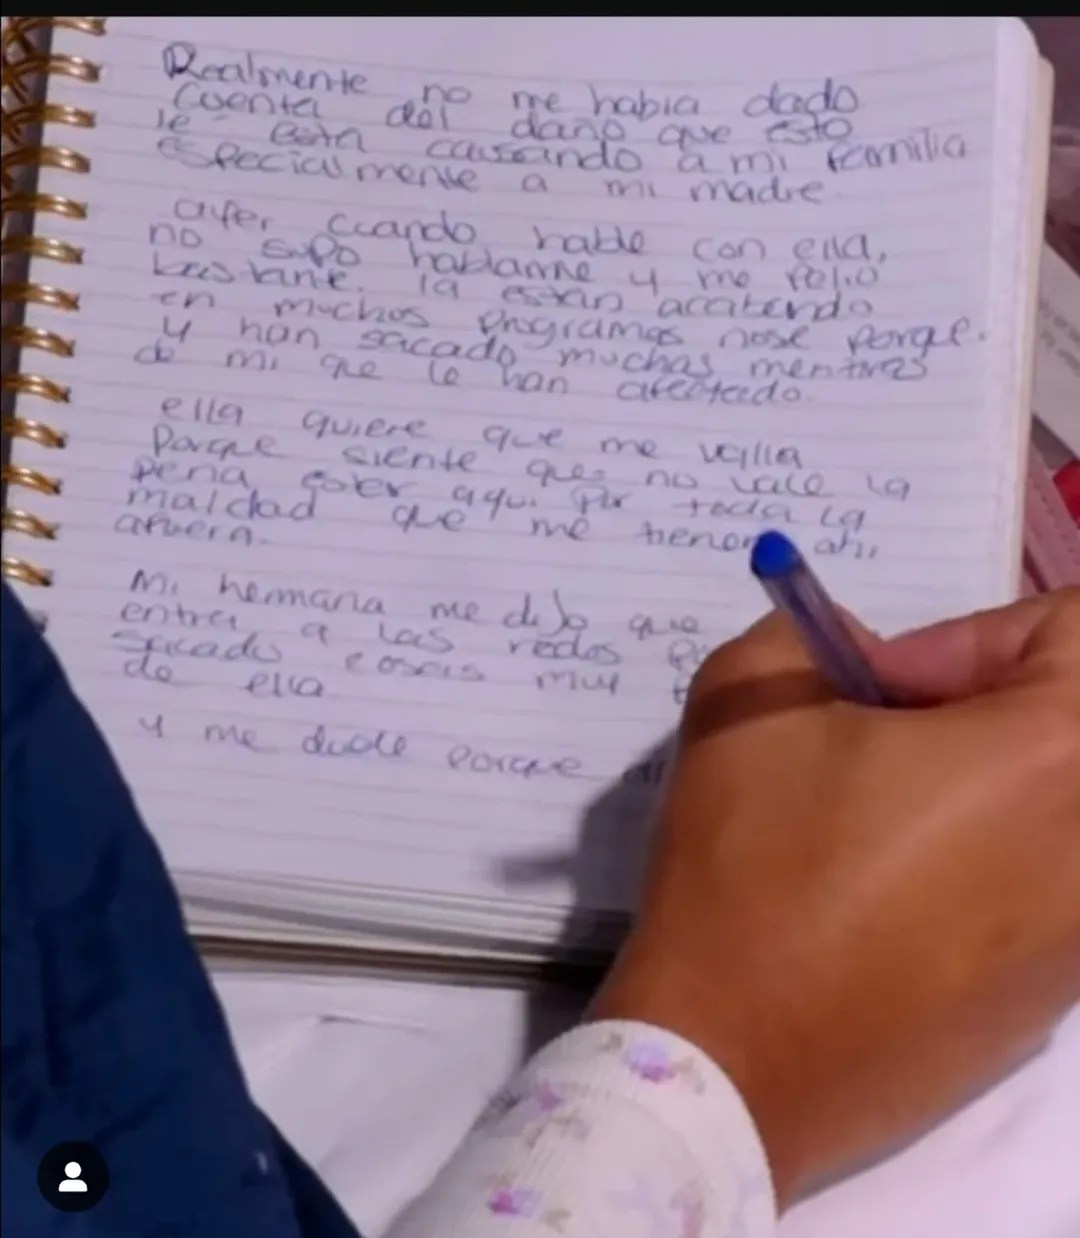 Realmente no me habia dado
cuenta del daño que esto
le esta causando a mi familia
especialmente a mi madre
ayer cuando hable con ella,
no supo hablarme y me
bastante. la estan
en muchos programas nose porque.
y han sacado muchas mentiras
de mi que la han afectado.
ella quiere que me vallla
Porque siente que no vale la
pena estar aqui Por toda la
maldad que me tienen ahi
afuera.
Mi hermana me dijo que
entra a las redes
sacado cosas muy
de ella
y me duele porque